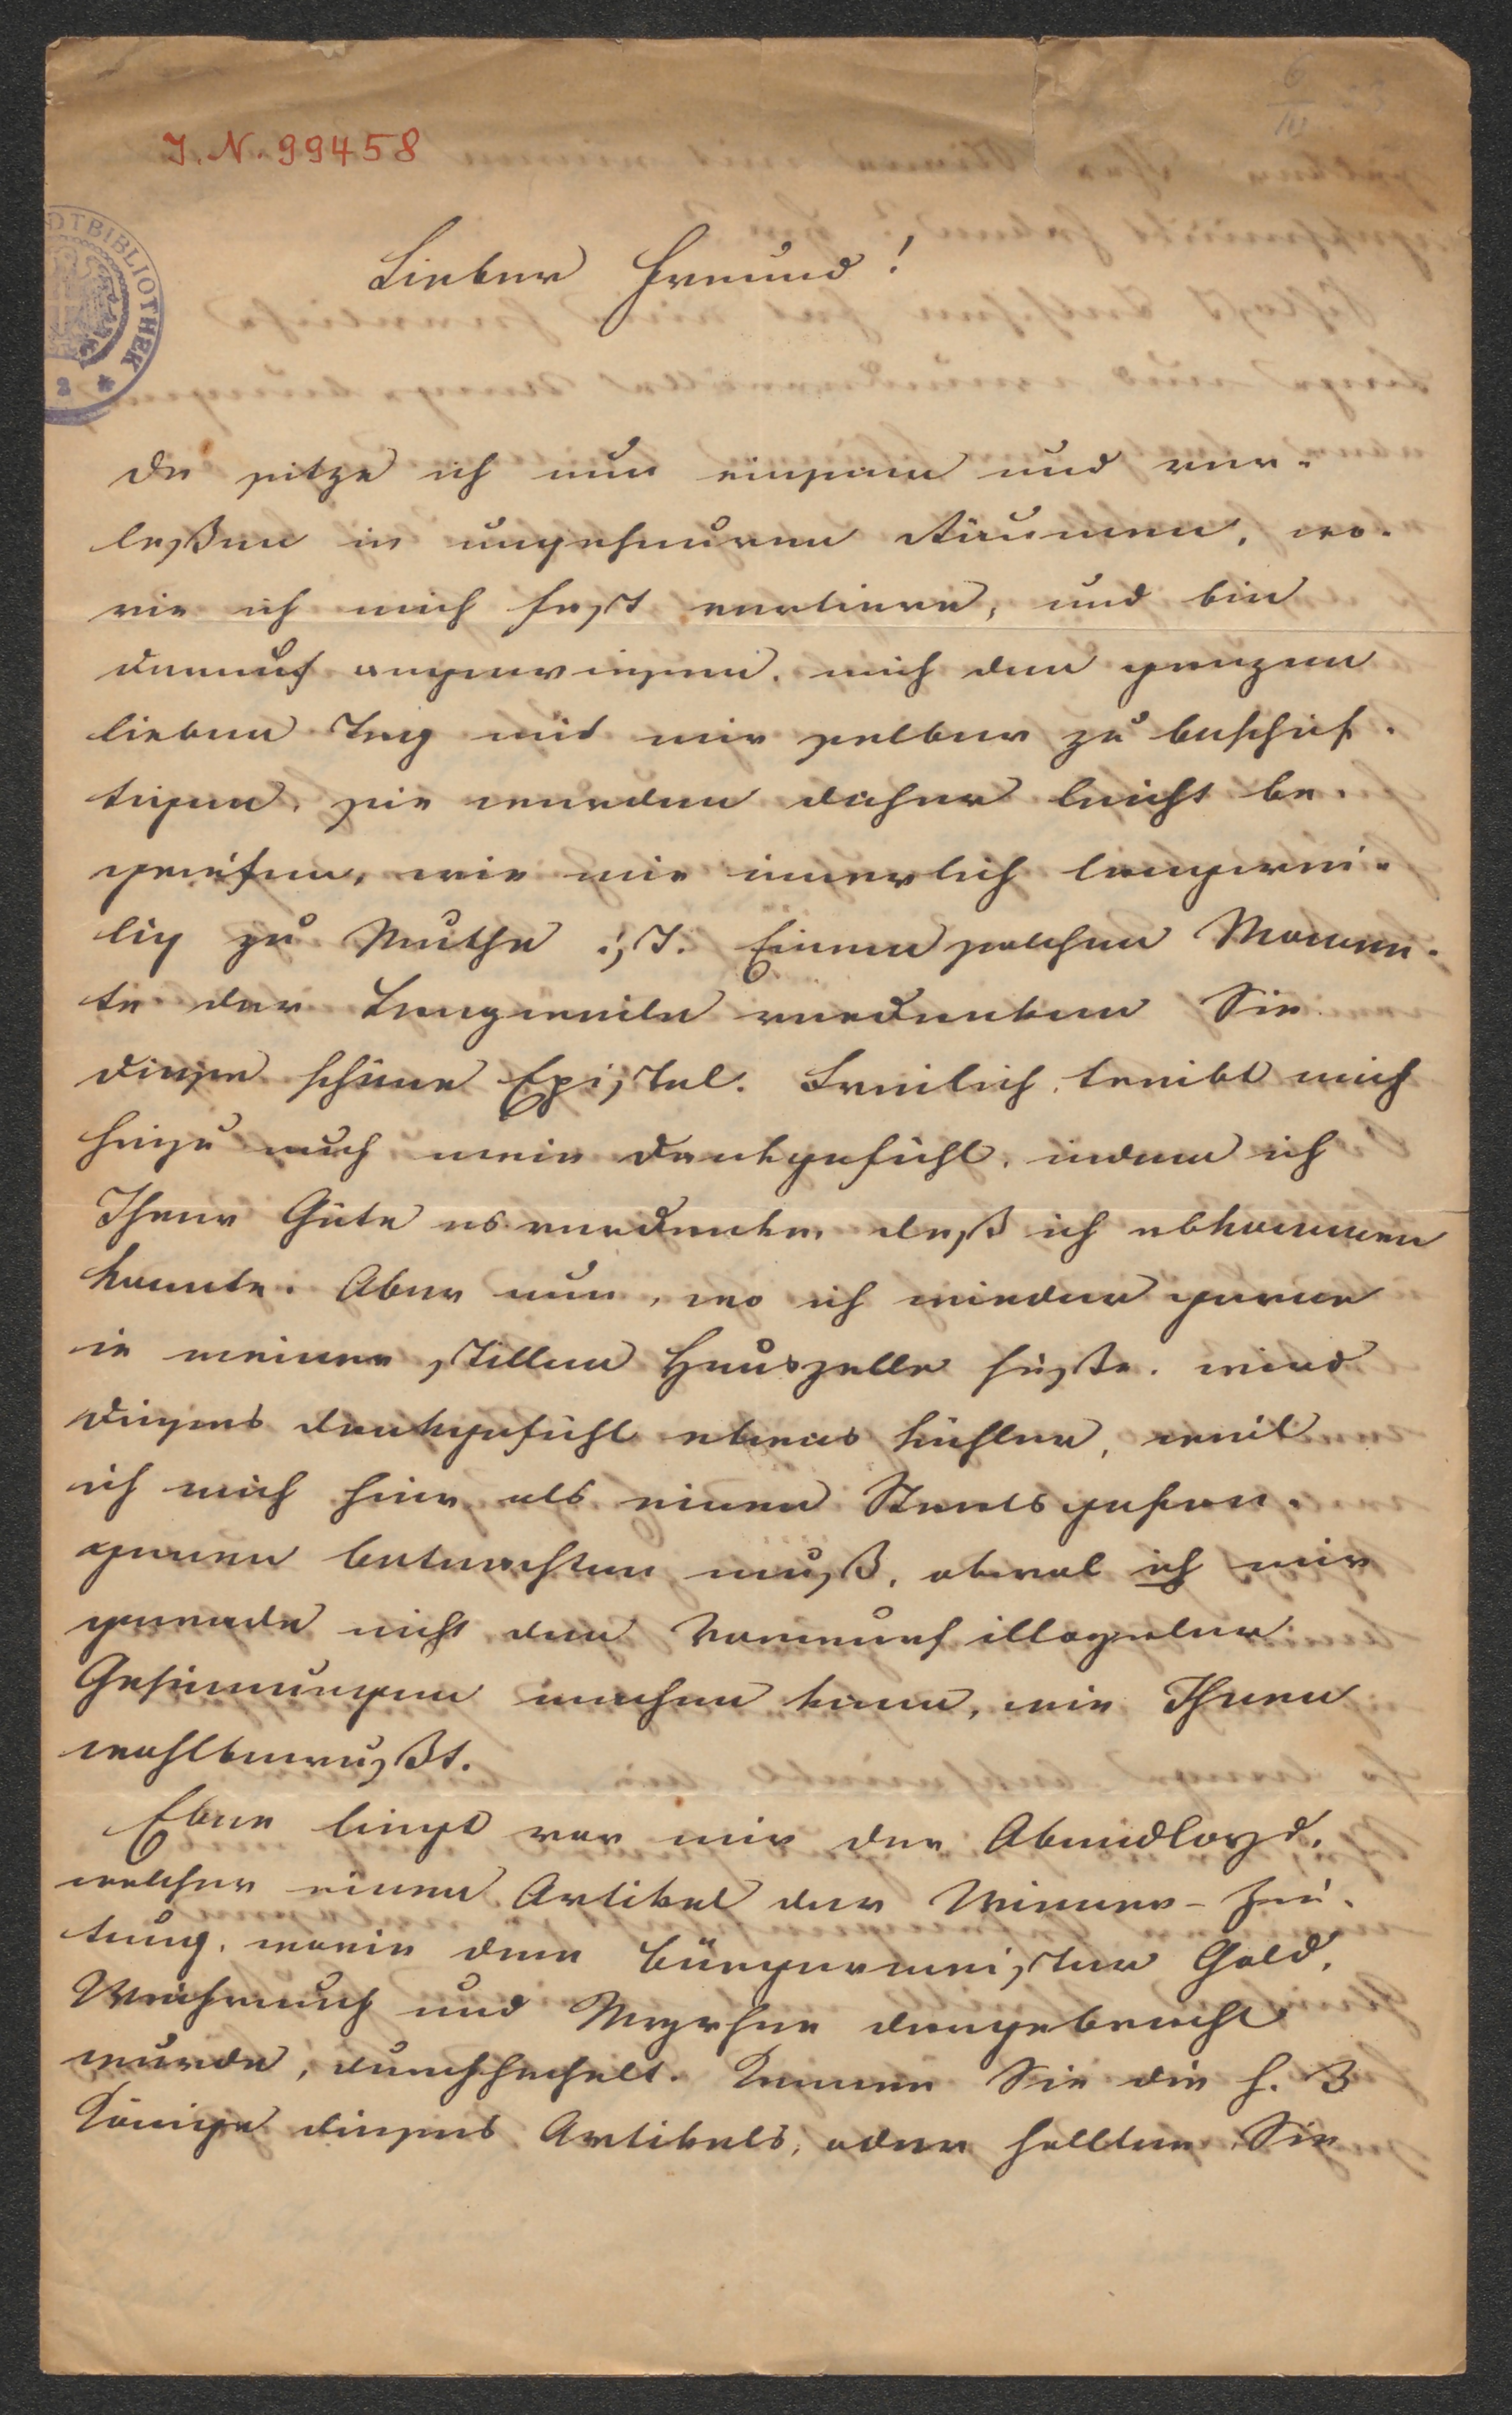 I. N. 99458
6
III
STADTBIBLIOTHEK
Lieber Freund!
Da sitze ich nun einsam und ver-
lassen in ungeheuren Räumen, wo-
rin ich mich fast verliere, und bin
darauf angewiesen, mich den ganzen
lieben Tag mit mir selber zu beschäf-
tigen. Sie werden daher leicht be-
greifen, wie mir innerlich langwei-
lig zu Muthe ist. Einem solchen Momen-
te der Langweile verdanken Sie
diese schöne Epistel. Freilich treibt mich
hiezu auch mein Dankgefühl, indem ich
Ihrer Güte es verdanke, daß ich abkommen
konnte. Aber nun, wo ich wieder gerne
in meiner stillen Hauszelle säße, wird
dieses Dankgefühl etwas kühler, weil
ich mich hier als einen Staatsgefan-
genen betrachten muß, obwol ich mir
gerade nicht den Vorwurf illoyaler
Gesinnungen machen kann, wie Ihnen
wohlbewußt.
Eben liegt vor mir der Abendloyd,
welcher einen Artikel der Wiener-Zei-
tung, worin dem Bürgermeister Gold,
Weihrauch und Myrhen dargebracht
wurde, durchhechelt. Kennen Sie die h. 3
Könige dieses Artikels, oder sollten Sie